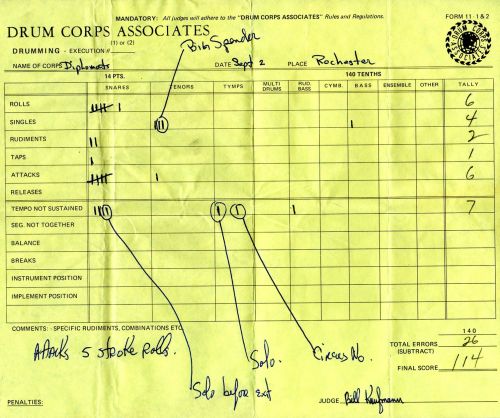 MANDATORY: All judges will adhere to the "DRUM CORPS ASSOCIATES" Rules and Regulations.
FORM 11 - 1 & 2
DRUM CORPS ASSOCIATES
(1) or (2)
DRUMMING - EXECUTION #
Bibi Spender
NAME OF CORPS Diplomats DATE Sept 2 PLACE Rochester
14 PTS. 140 TENTHS
SNARES TENORS TYMPS MULTI DRUMS RUD. BASS CYMB. BASS ENSEMBLE OTHER TALLY
ROLLS 6
SINGLES 4
RUDIMENTS 2
TAPS 1
ATTACKS 6
RELEASES
TEMPO NOT SUSTAINED 7
SEG. NOT TOGETHER
BALANCE
BREAKS
INSTRUMENT POSITION
IMPLEMENT POSITION
COMMENTS: - SPECIFIC RUDIMENTS, COMBINATIONS ETC.
140
TOTAL ERRORS 26
(SUBTRACT)
FINAL SCORE 114
Attacks 5 Stroke Rolls.
Solo. Circus No.
Solo before Ext
PENALTIES:
JUDGE Bill Kaufmann